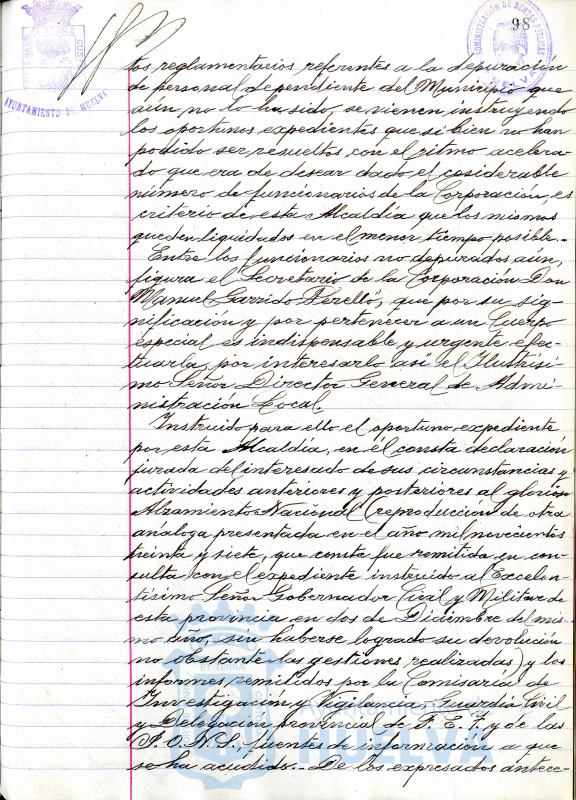 98
AYUNTAMIENTO DE HUELVA
ADMINISTRACIÓN DE RENTAS PÚBLICAS
HUELVA
tos reglamentarios referentes a la depuración
de personal dependiente del Municipio que
aún no lo ha sido, se vienen instruyendo
los oportunos expedientes que si bien no han
podido ser resueltos con el ritmo acelera-
do que era de desear dado el cosiderable
número de funcionarios de la Corporación, es
criterio de esta Alcaldía que los mismos
queden liquidados en el menor tiempo posible.-
Entre los funcionarios no depurados aún,
figura el Secretario de la Corporación Don
Manuel Garrido Perelló, que por su sig-
nificación y por pertenecer a un Cuerpo
especial es indispensable y urgente efec-
tuarla, por interesarlo así el Ilustrísi-
mo Señor Director General de Admi-
nistración Local.
Instruido para ello el oportuno expediente
por esta Alcaldía, en él consta declaración
jurada del interesado de sus circunstancias y
actividades anteriores y posteriores al glorioso
Alzamiento Nacional (reproducion de otra
análoga presentada en el año mil novecientos
treinta y siete, que consta fue remitida en con-
sulta con el expediente instruido al Excelen-
tísimo Señor Gobernador Civil y Militar de
esta provincia en dos de Diciembre del mis-
mo año, sin haberse logrado su devolución
no obstante las gestiones realizadas) y los
informes remitidos por la Comisaría de
Investigación y Vigilancia, Guardia Civil
y Delegación provincial de F. E. T. y de las
J. O. N. S., fuentes de información a que
se ha acudido.- De los expresados antece-
HUELVA